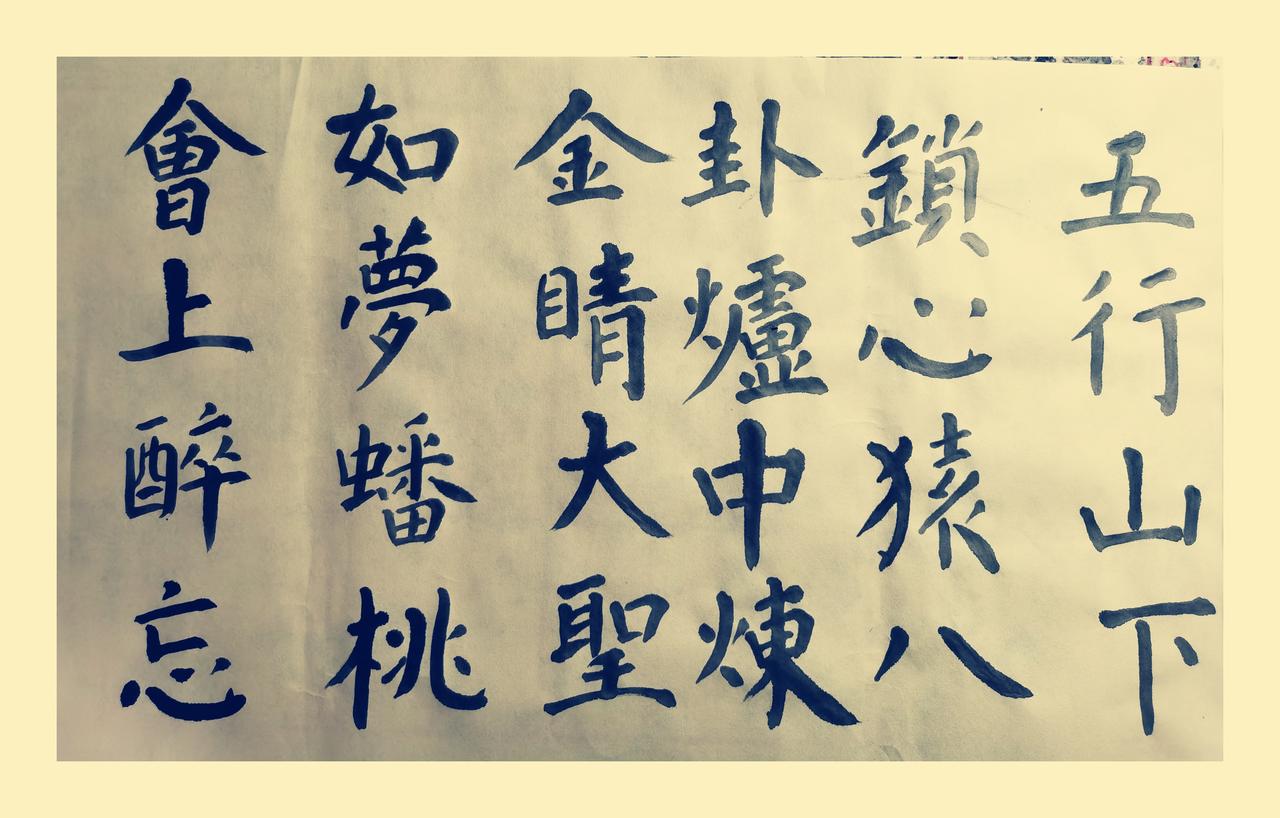 五行山下
鎖心猿八
卦爐中煉
金睛大聖
如夢蟠桃
會上醉忘